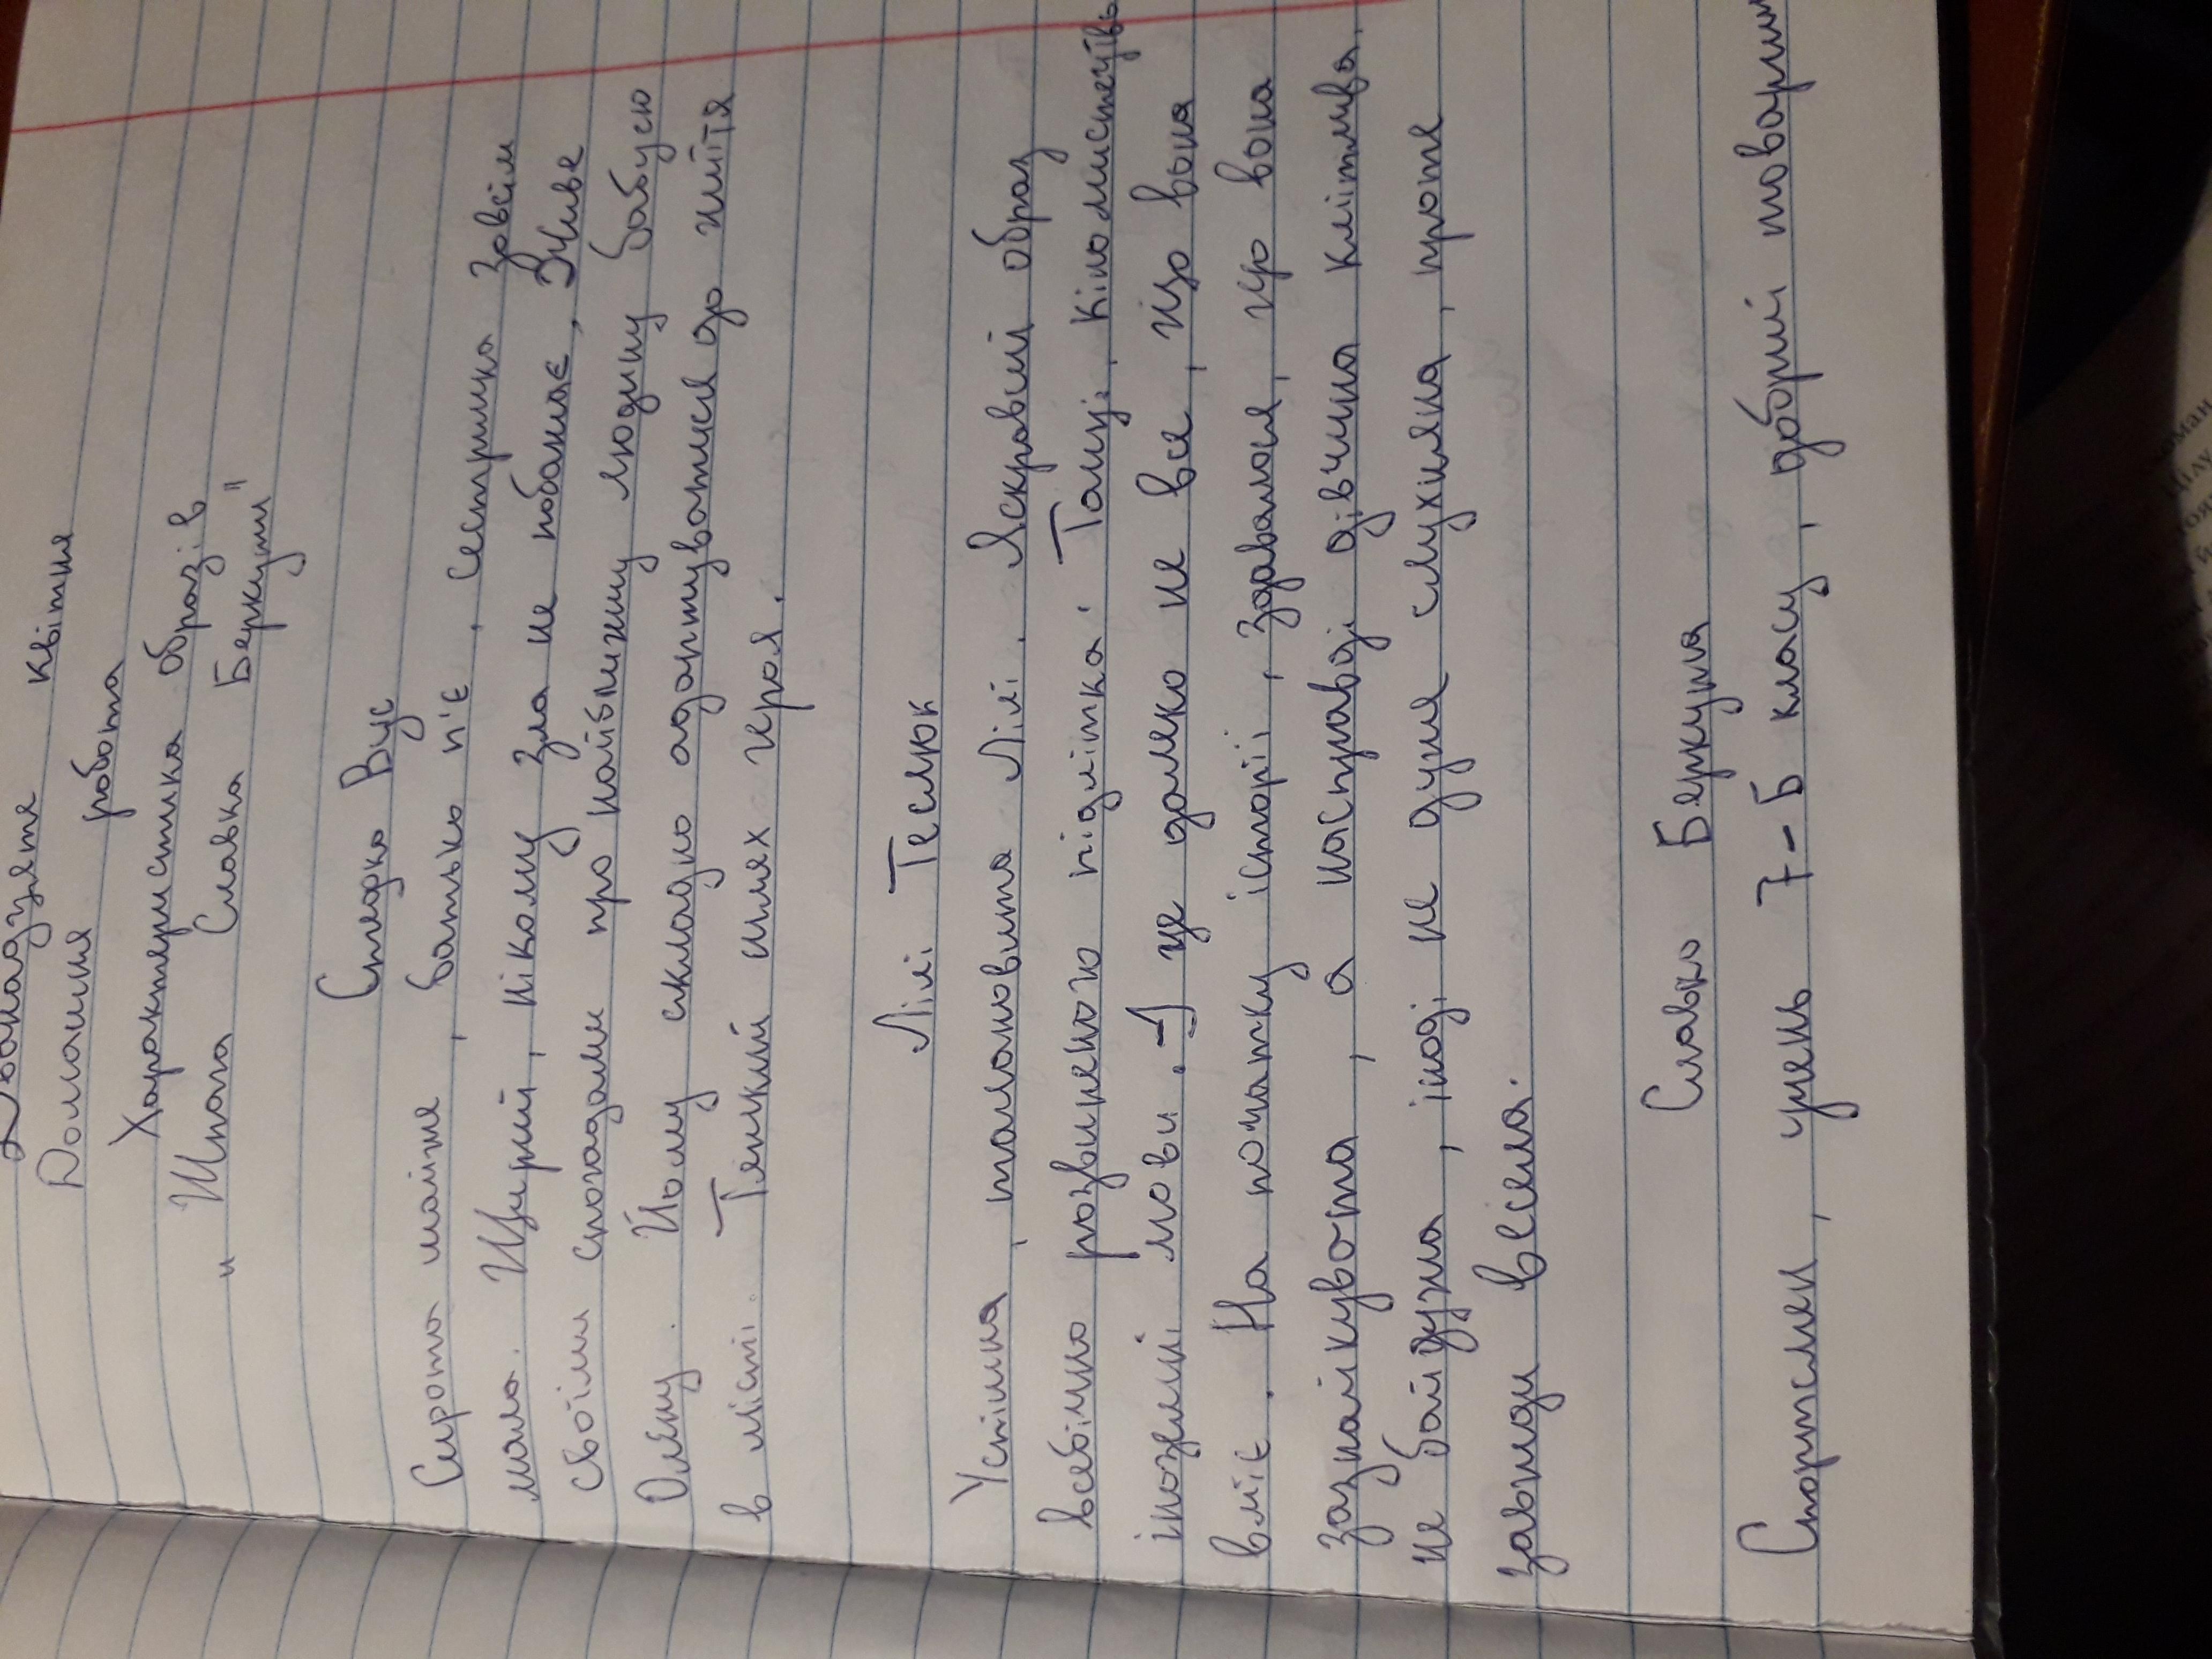 Дванадцяте квітня
Домашня робота
Характеристика образів
"Шпага Славка Беркути"
Стефко Вус
Сирота майже, батько п'є, сестричка зовсім
мала. Щирий, нікому зла не побажає, Живе
своїми спогадами про найближчу людину бабусю
Оляну. Йому складно адаптуватися до життя
в місті. Тяжкий шлях героя.
Лілі Теслюк
Успішна, талановита Лілі. Яскравий образ
всебічно розвиненого підлітка. Танці, кіномистецтво
іноземні мови. І це далеко не все, що вона
вміє. На початку історії, здавалося, що вона
зазнайкувата, а насправді дівчина кмітлива,
не байдужа, іноді не дуже слухняна, проте
завжди весела.
Славко Беркута
Спортсмен, учень 7-Б класу, добрий товариш
роман